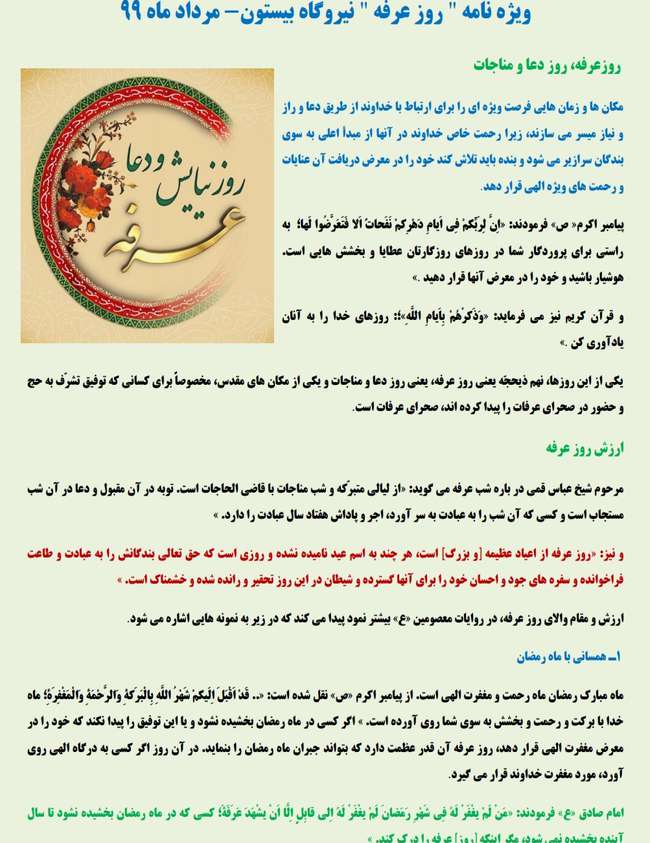 ویژه نامه " روز عرفه " نیروگاه بیستون- مرداد ماه ۹۹
روزعرفه، روز دعا و مناجات
مکان ها و زمان هایی فرصت ویژه ای را برای ارتباط با خداوند از طریق دعا و راز
و نیاز میسر می سازند، زیرا رحمت خاص خداوند در آنها از مبدأ اعلی به سوی
بندگان سرازیر می شود و بنده باید تلاش کند خود را در معرض دریافت آن عنایات
و رحمت های ویژه الهی قرار دهد.
روز نیایش و دعا
عرفه
پیامبر اکرم« ص» فرمودند: «اِنَّ لِرَبِّکُمْ فِی اَیامِ دَهْرِکُمْ نَفَحاتٌ اَلا فَتَعَرَّضُوا لَها؛ به
راستی برای پروردگار شما در روزهای روزگارتان عطایا و بخشش هایی است.
هوشیار باشید و خود را در معرض آنها قرار دهید .»
و قرآن کریم نیز می فرماید: «وَذَکِّرْهُمْ بِاَیامِ اللَّهِ»؛: روزهای خدا را به آنان
یادآوری کن .»
یکی از این روزها، نهم ذیحجّه یعنی روز عرفه، یعنی روز دعا و مناجات و یکی از مکان های مقدس، مخصوصاً برای کسانی که توفیق تشرّف به حج
و حضور در صحرای عرفات را پیدا کرده اند، صحرای عرفات است.
ارزش روز عرفه
مرحوم شیخ عباس قمی در باره شب عرفه می گوید: «از لیالی متبرّکه و شب مناجات با قاضی الحاجات است. توبه در آن مقبول و دعا در آن شب
مستجاب است و کسی که آن شب را به عبادت به سر آورد، اجر و پاداش هفتاد سال عبادت را دارد. »
و نیز: «روز عرفه از اعیاد عظیمه [و بزرگ] است، هر چند به اسم عید نامیده نشده و روزی است که حق تعالی بندگانش را به عبادت و طاعت
فراخوانده و سفره های جود و احسان خود را برای آنها گسترده و شیطان در این روز تحقیر و رانده شده و خشمناک است. »
ارزش و مقام والای روز عرفه، در روایات معصومین «ع» بیشتر نمود پیدا می کند که در زیر به نمونه هایی اشاره می شود.
۱ـ همسانی با ماه رمضان
ماه مبارک رمضان ماه رحمت و مغفرت الهی است. از پیامبر اکرم «ص» نقل شده است: «.. قَدْ اَقْبَلَ اِلَیکُمْ شَهْرُ اللَّهِ بِالْبَرَکَةِ وَالرَّحْمَةِ وَالْمَغْفِرَةِ؛ ماه
خدا با برکت و رحمت و بخشش به سوی شما روی آورده است. » اگر کسی در ماه رمضان بخشیده نشود و یا این توفیق را پیدا نکند که خود را در
معرض مغفرت الهی قرار دهد، روز عرفه آن قدر عظمت دارد که بتواند جبران ماه رمضان را بنماید. در آن روز اگر کسی به درگاه الهی روی
آورد، مورد مغفرت خداوند قرار می گیرد.
امام صادق «ع» فرمودند: «مَنْ لَمْ یغْفَرْ لَهُ فِی شَهْرِ رَمَضَانَ لَمْ یغْفَرْ لَهُ اِلی قابِلٍ اِلَّا اَنْ یشْهَدَ عَرَفَةَ؛ کسی که در ماه رمضان بخشیده نشود تا سال
آینده بخشیده نمی شود، مگر اینکه [روز] عرفه را درک کند. »